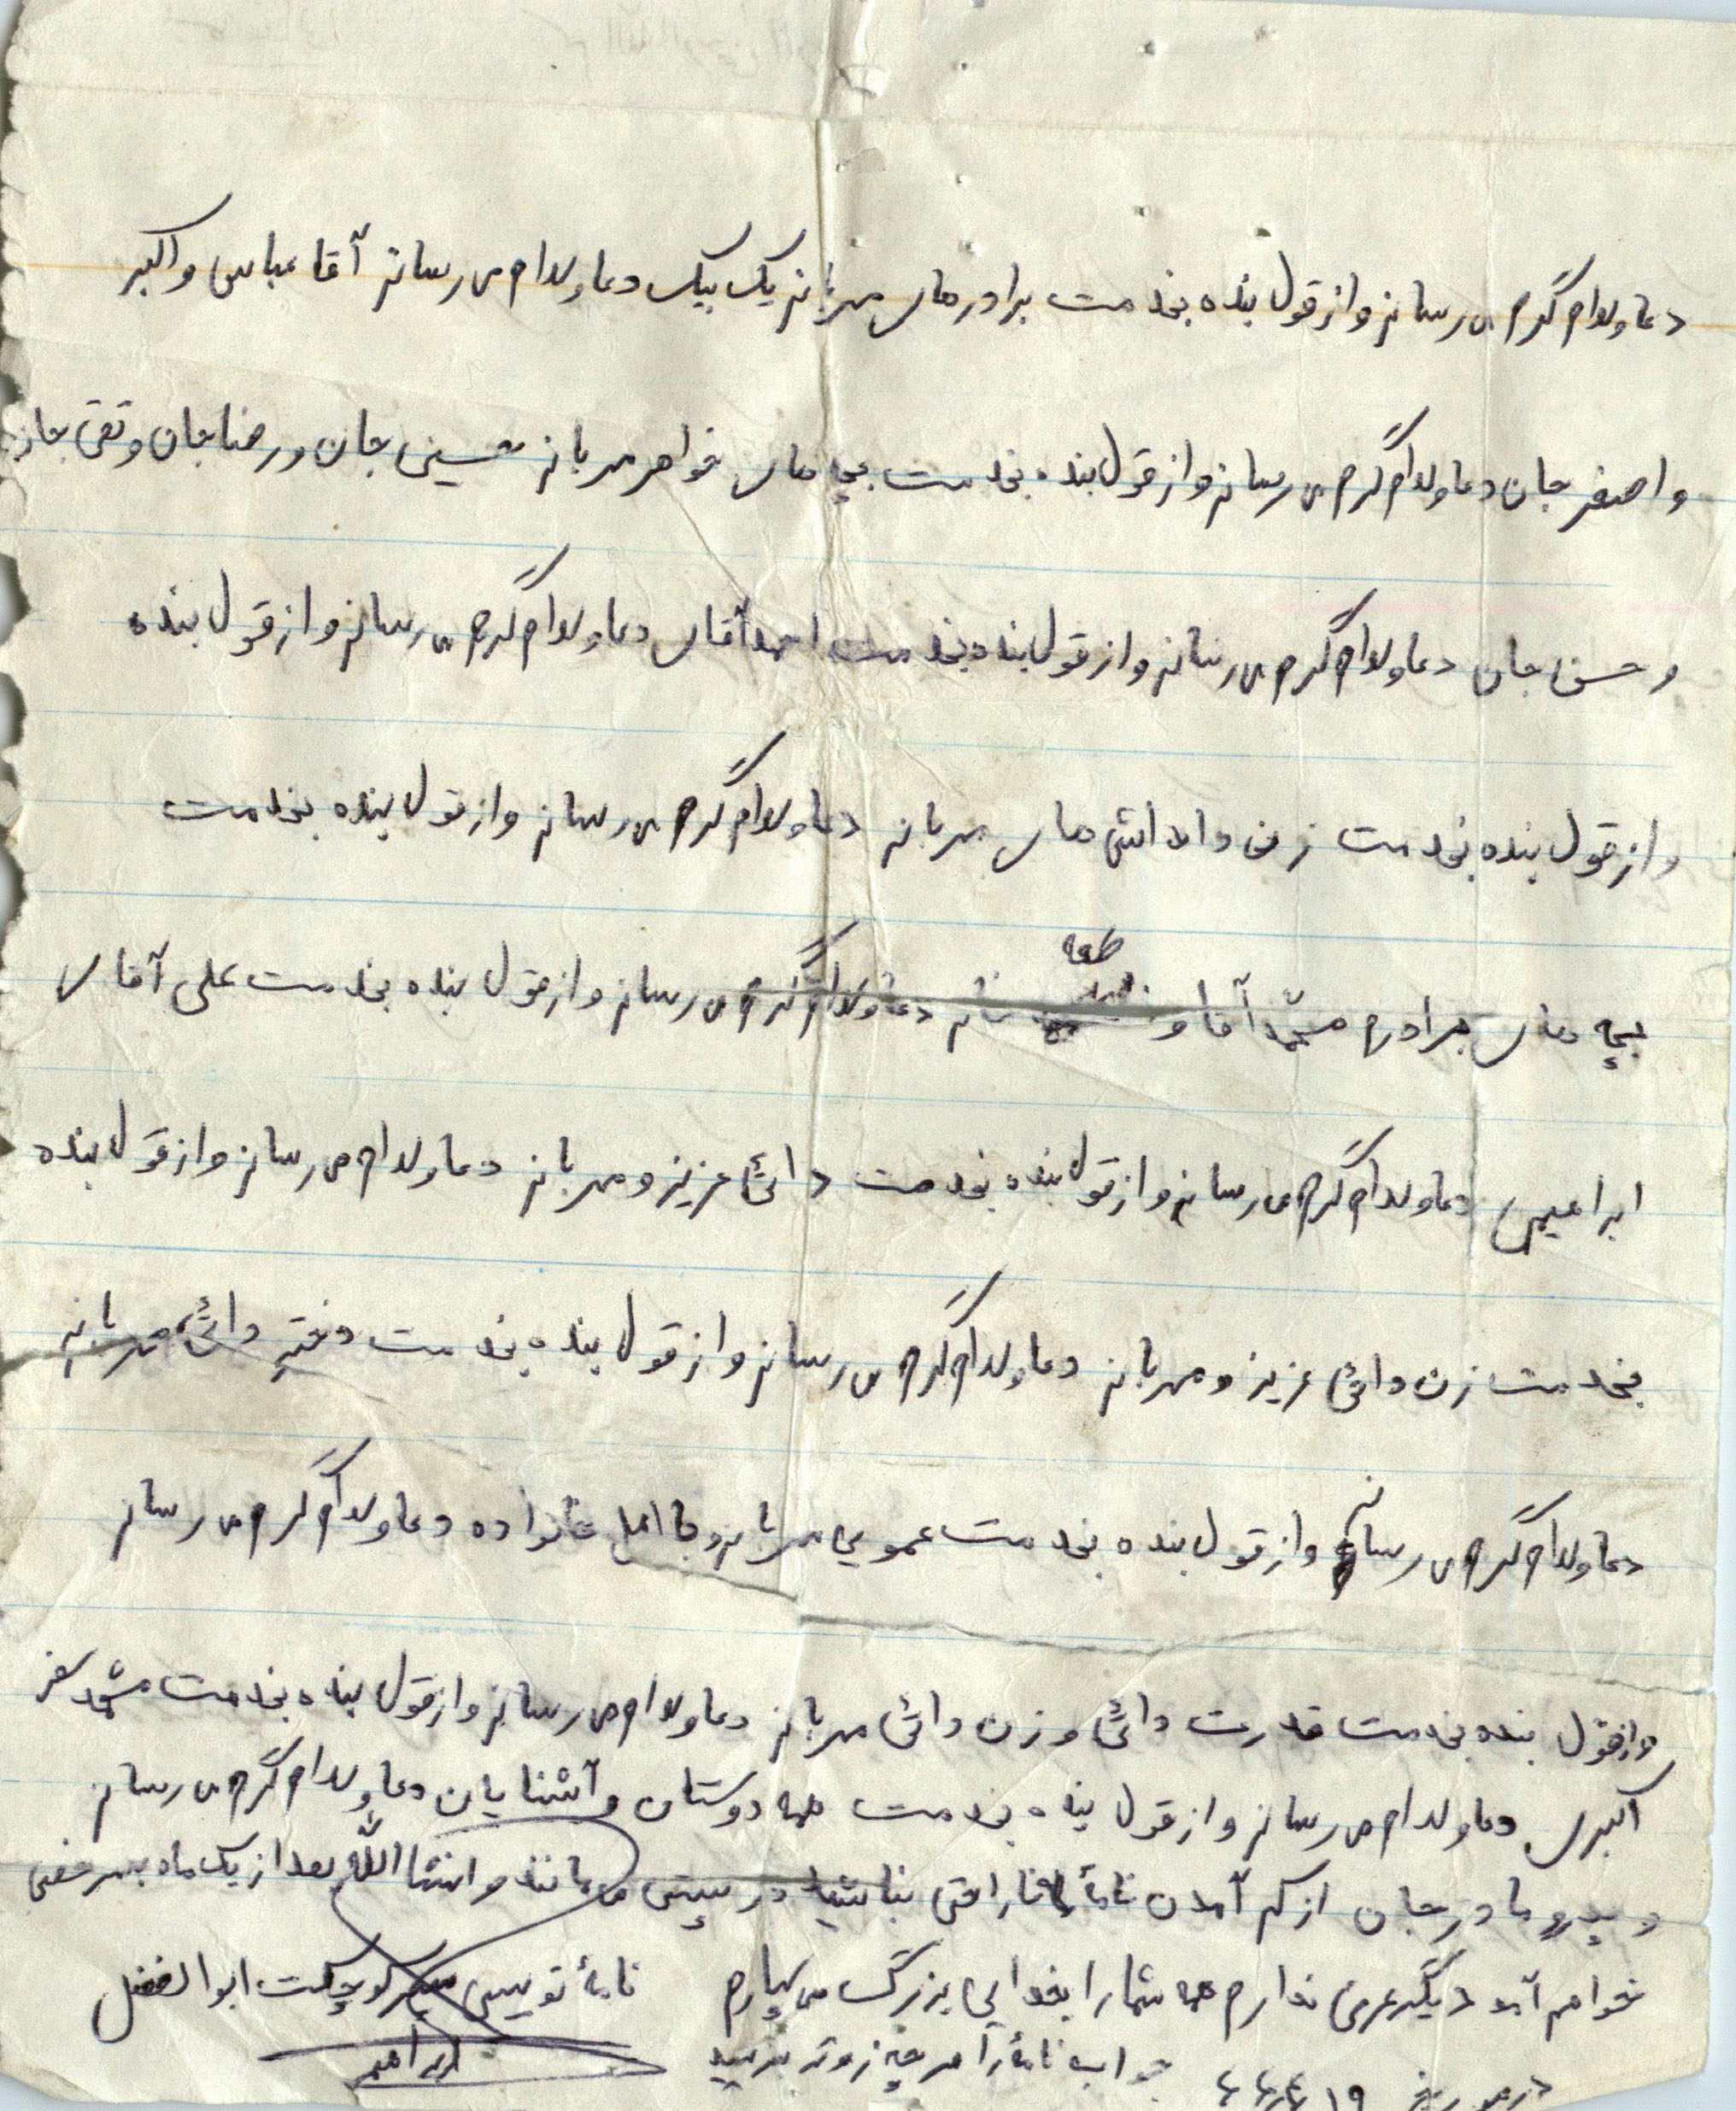 دعا و سلام گرم می رسانم و از قول بنده بخدمت برادرهای مهربانم یک بیک دعا و سلام می رسانم آقا عباس و اکبر
و اصغر جان دعا و سلام گرم می رسانم و از قول بنده بخدمت بچه های خواهر مهربانم حسین جان و رضا جان و تقی جان
و حسن جان دعا و سلام گرم می رسانم و از قول بنده بخدمت احمد آقای دعا و سلام گرم می رسانم و از قول بنده
و از قول بنده بخدمت زن داداش های مهربانم دعا و سلام گرم می رسانم و از قول بنده بخدمت
بچه های برادرم محمد آقا و خانم دعا و سلام گرم می رسانم و از قول بنده بخدمت علی آقای
ابراهیمی دعا و سلام گرم می رسانم و از قول بنده بخدمت دائی عزیز و مهربانم دعا و سلام می رسانم و از قول بنده
بخدمت زن دائی عزیز و مهربانم دعا و سلام گرم می رسانم و از قول بنده بخدمت دختر دائی مهربانم
دعا و سلام گرم می رسانم و از قول بنده بخدمت عمویی مهربانم و با اهل خانواده دعا و سلام گرم می رسانم
و از قول بنده بخدمت قدرت دائی و زن دائی مهربانم دعا و سلام می رسانم و از قول بنده بخدمت
اکبری دعا و سلام می رسانم و از قول بنده بخدمت همه دوستان و آشنایان دعا و سلام گرم می رسانم
و پدر و مادر جان از کم آمدن نامهٔ ناراحتی نباشید در و انشاالله بعد از یک ماه بمرخصی
خواهم آمد دیگر عرضی ندارم همه شما را بخدایی بزرگ می سپارم نامهٔ نویسی کوچکت ابوالفضل
جواب نامهٔ را هر چه زودتر بدهید ابراهیمی
در مورخ ۱۹